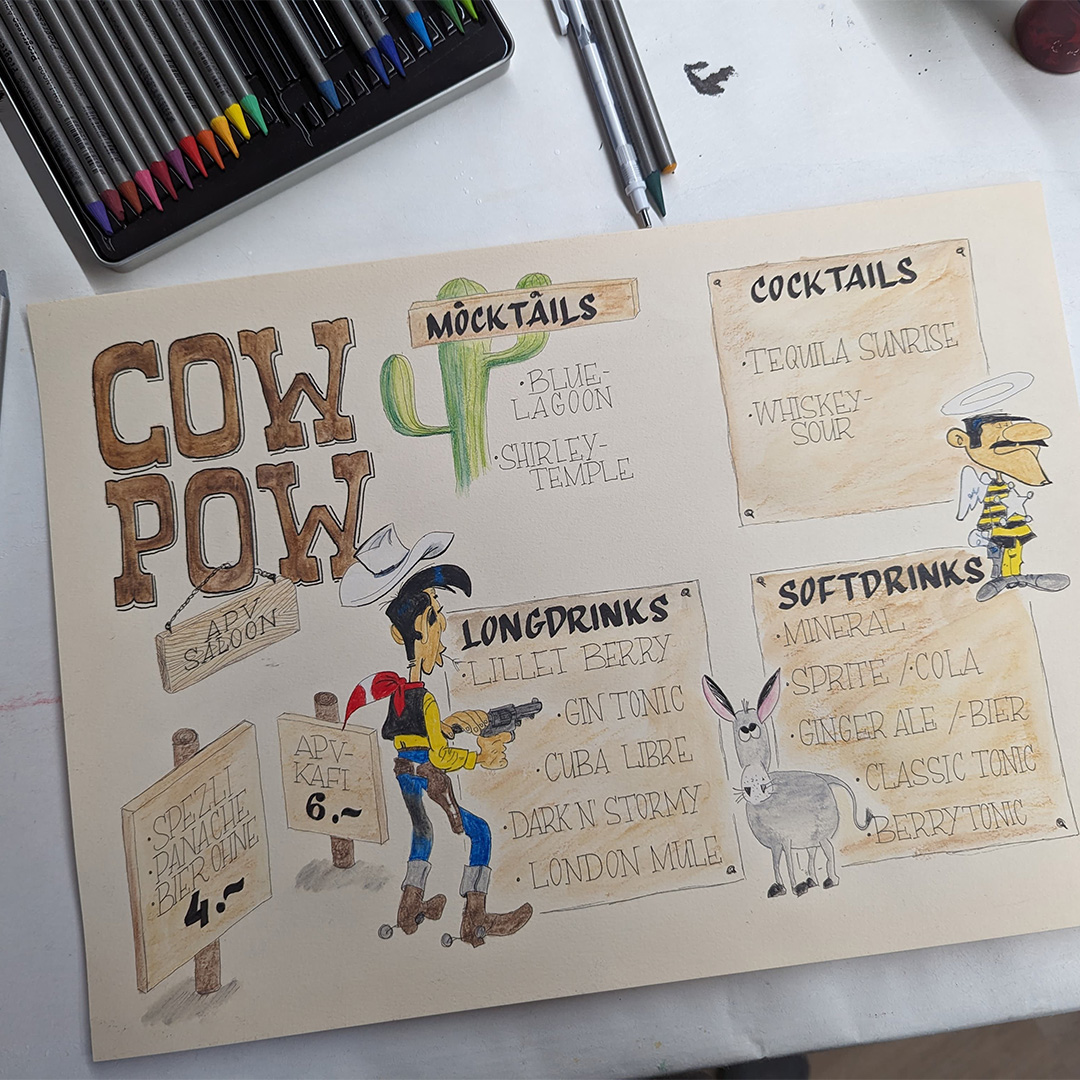 COW
POW
APV
SALOON
MOCKTAILS
·BLUE-
LAGOON
·SHIRLEY-
TEMPLE
COCKTAILS
·TEQUILA SUNRISE
·WHISKEY-
SOUR
LONGDRINKS
·LILLET BERRY
·GIN TONIC
·CUBA LIBRE
·DARK N' STORMY
·LONDON MULE
SOFTDRINKS
·MINERAL
·SPRITE /·COLA
·GINGER ALE /-BIER
·CLASSIC TONIC
·BERRY TONIC
·SPEZLI
·PANACHE
·BIER OHNE
4.-
APV-
KAFI
6.-